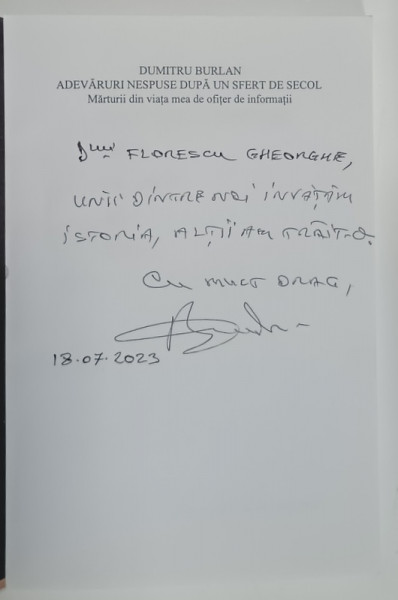 DUMITRU BURLAN
ADEVĂRURI NESPUSE DUPĂ UN SFERT DE SECOL
Mărturii din viața mea de ofițer de informații
Dlui FLORESCU GHEORGHE,
UNII DINTRE NOI ÎNVĂȚĂM
ISTORIA, ALȚII AM TRĂIT-O.
CU MULT DRAG,
18.07.2023